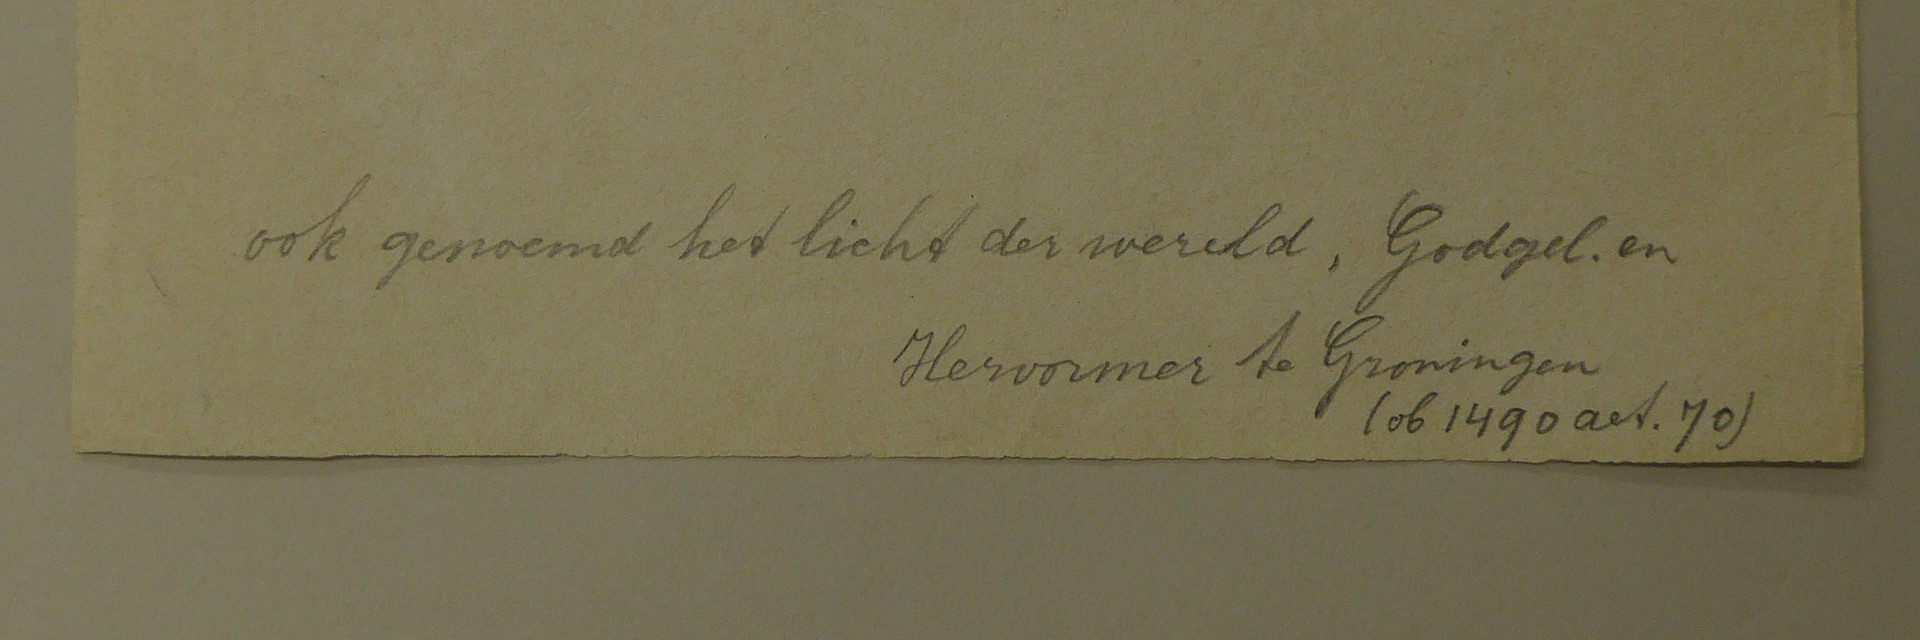 ook genoemd het licht der wereld, Godgel. en
Hervormer te Groningen
(ob 1490 aet. 70)